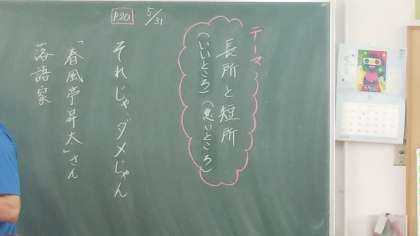 5/31
P20
テーマ
長所と短所
(いいところ)(悪いところ)
それじゃ、ダメじゃん
「春風亭昇太」さん
落語家